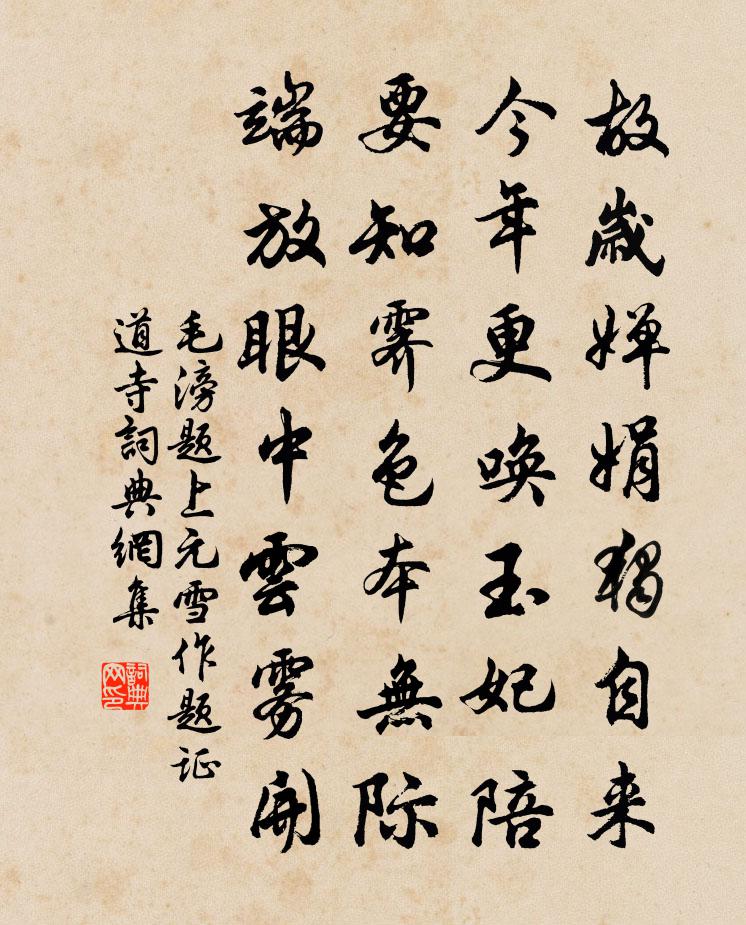 故歲嬋娟獨自来
今年更唤玉妃陪
要知霽色本無際
端放眼中雲雾開
毛滂题上元雪作题证
道寺詞典網集
詞典网印